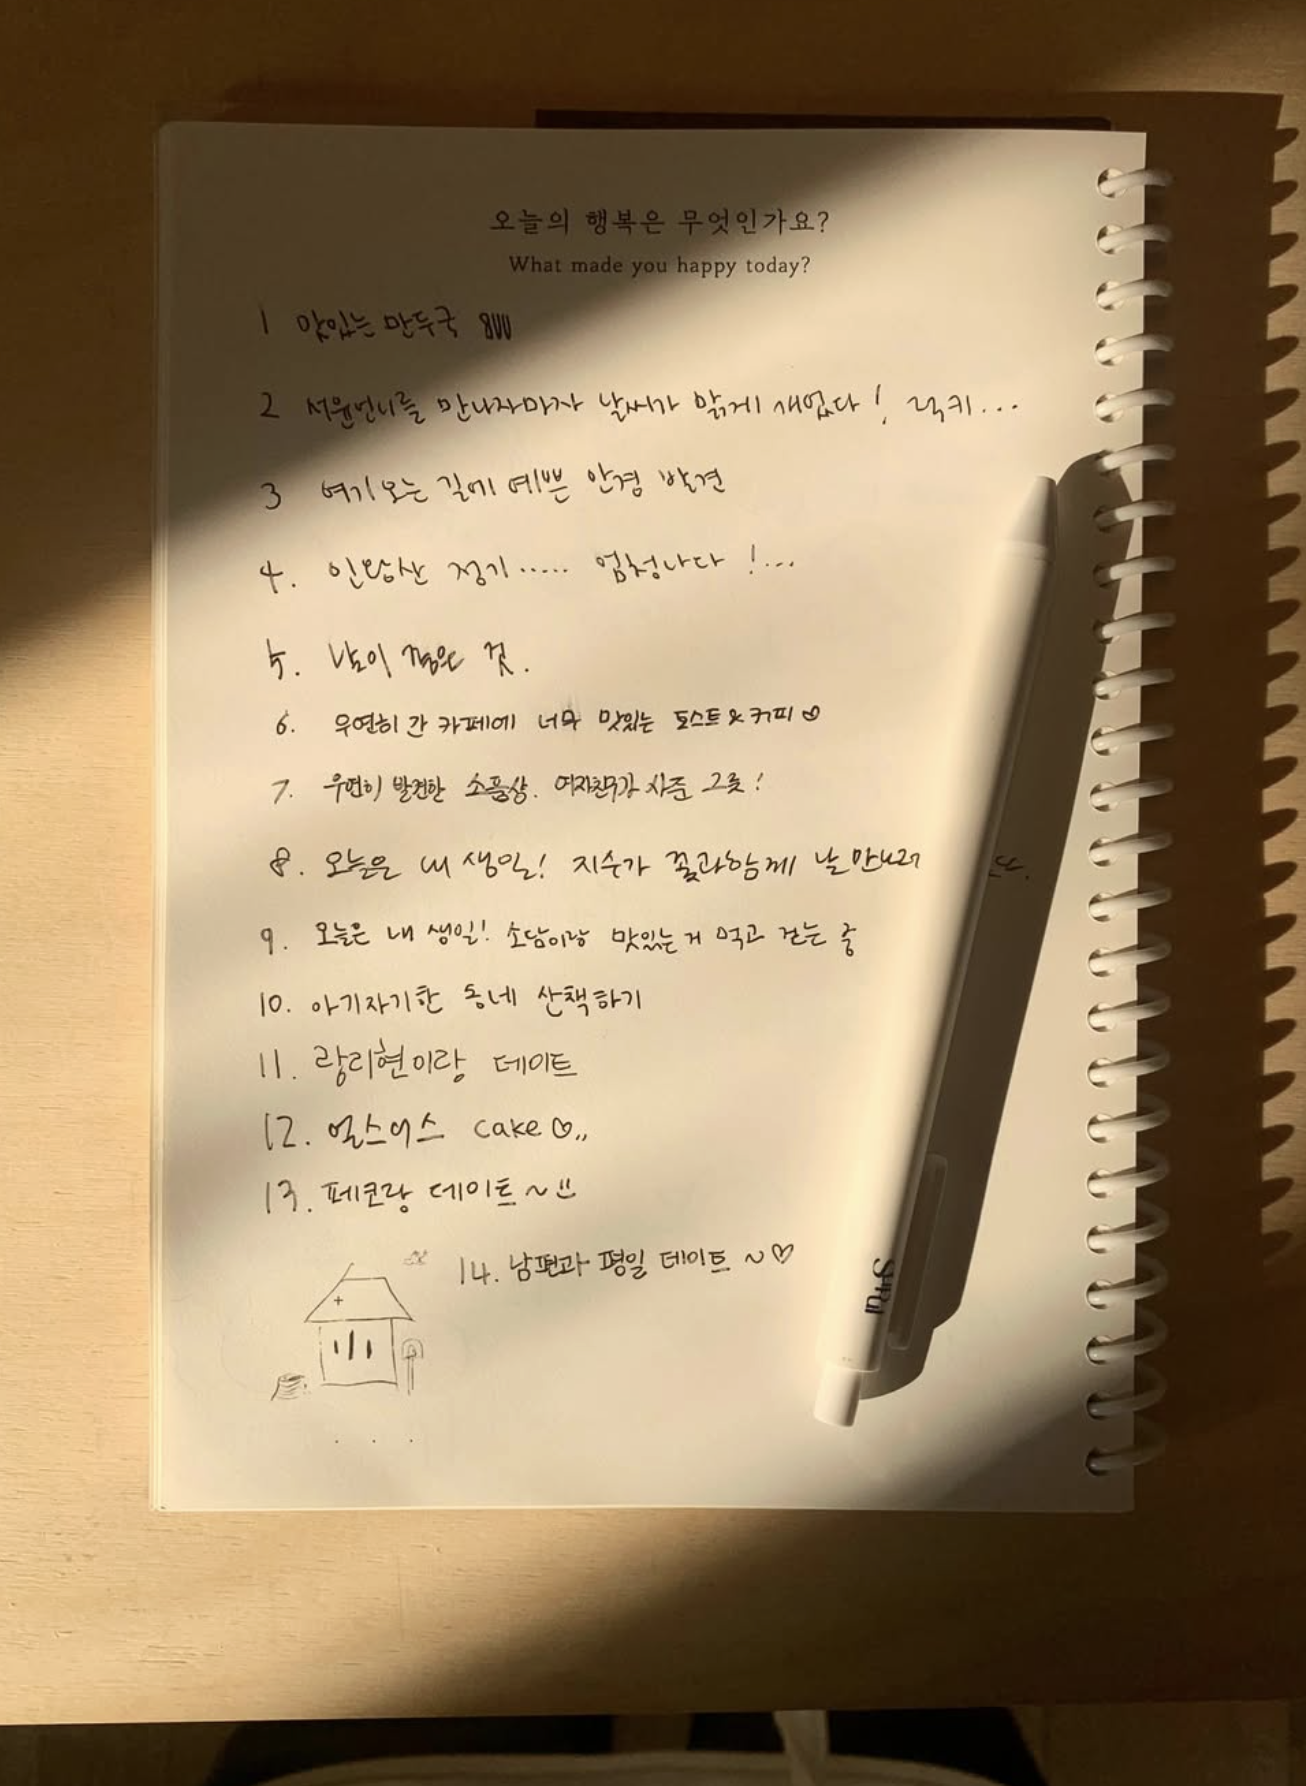 오늘의 행복은 무엇인가요?
What made you happy today?
1 맛있는 만두국
2 서윤언니를 만나자마자 날씨가 맑게 개었다! 럭키...
3 여기 오는 길에 예쁜 안경 발견
4. 인왕산 정기..... 엄청나다 !...
5. 날이 것.
6. 우연히 간 카페에 너무 맛있는 토스트 & 커피♡
7. 우연히 발견한 소품샵. 여자친구가 사준 그릇!
8. 오늘은 내 생일! 지수가 꽃과함께 날 만나러
9. 오늘은 내 생일! 소담이랑 맛있는 거 먹고 걷는 중
10. 아기자기한 동네 산책하기
11. 랑리현이랑 데이트
12. 얼스어스 cake♡,,
13. 페코랑 데이트~
14. 남편과 평일 데이트 ~♡
SHRU